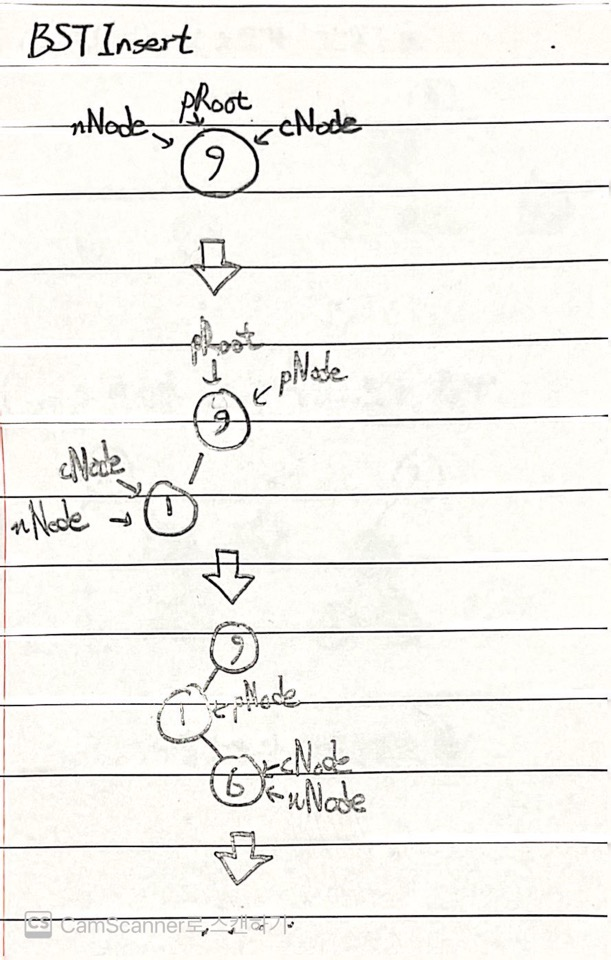 BST Insert
pRoot
nNode cNode
9
pRoot
pNode
9
cNode
1
nNode
9
1 pNode
cNode
6
nNode
CS CamScanner로 스캔하기